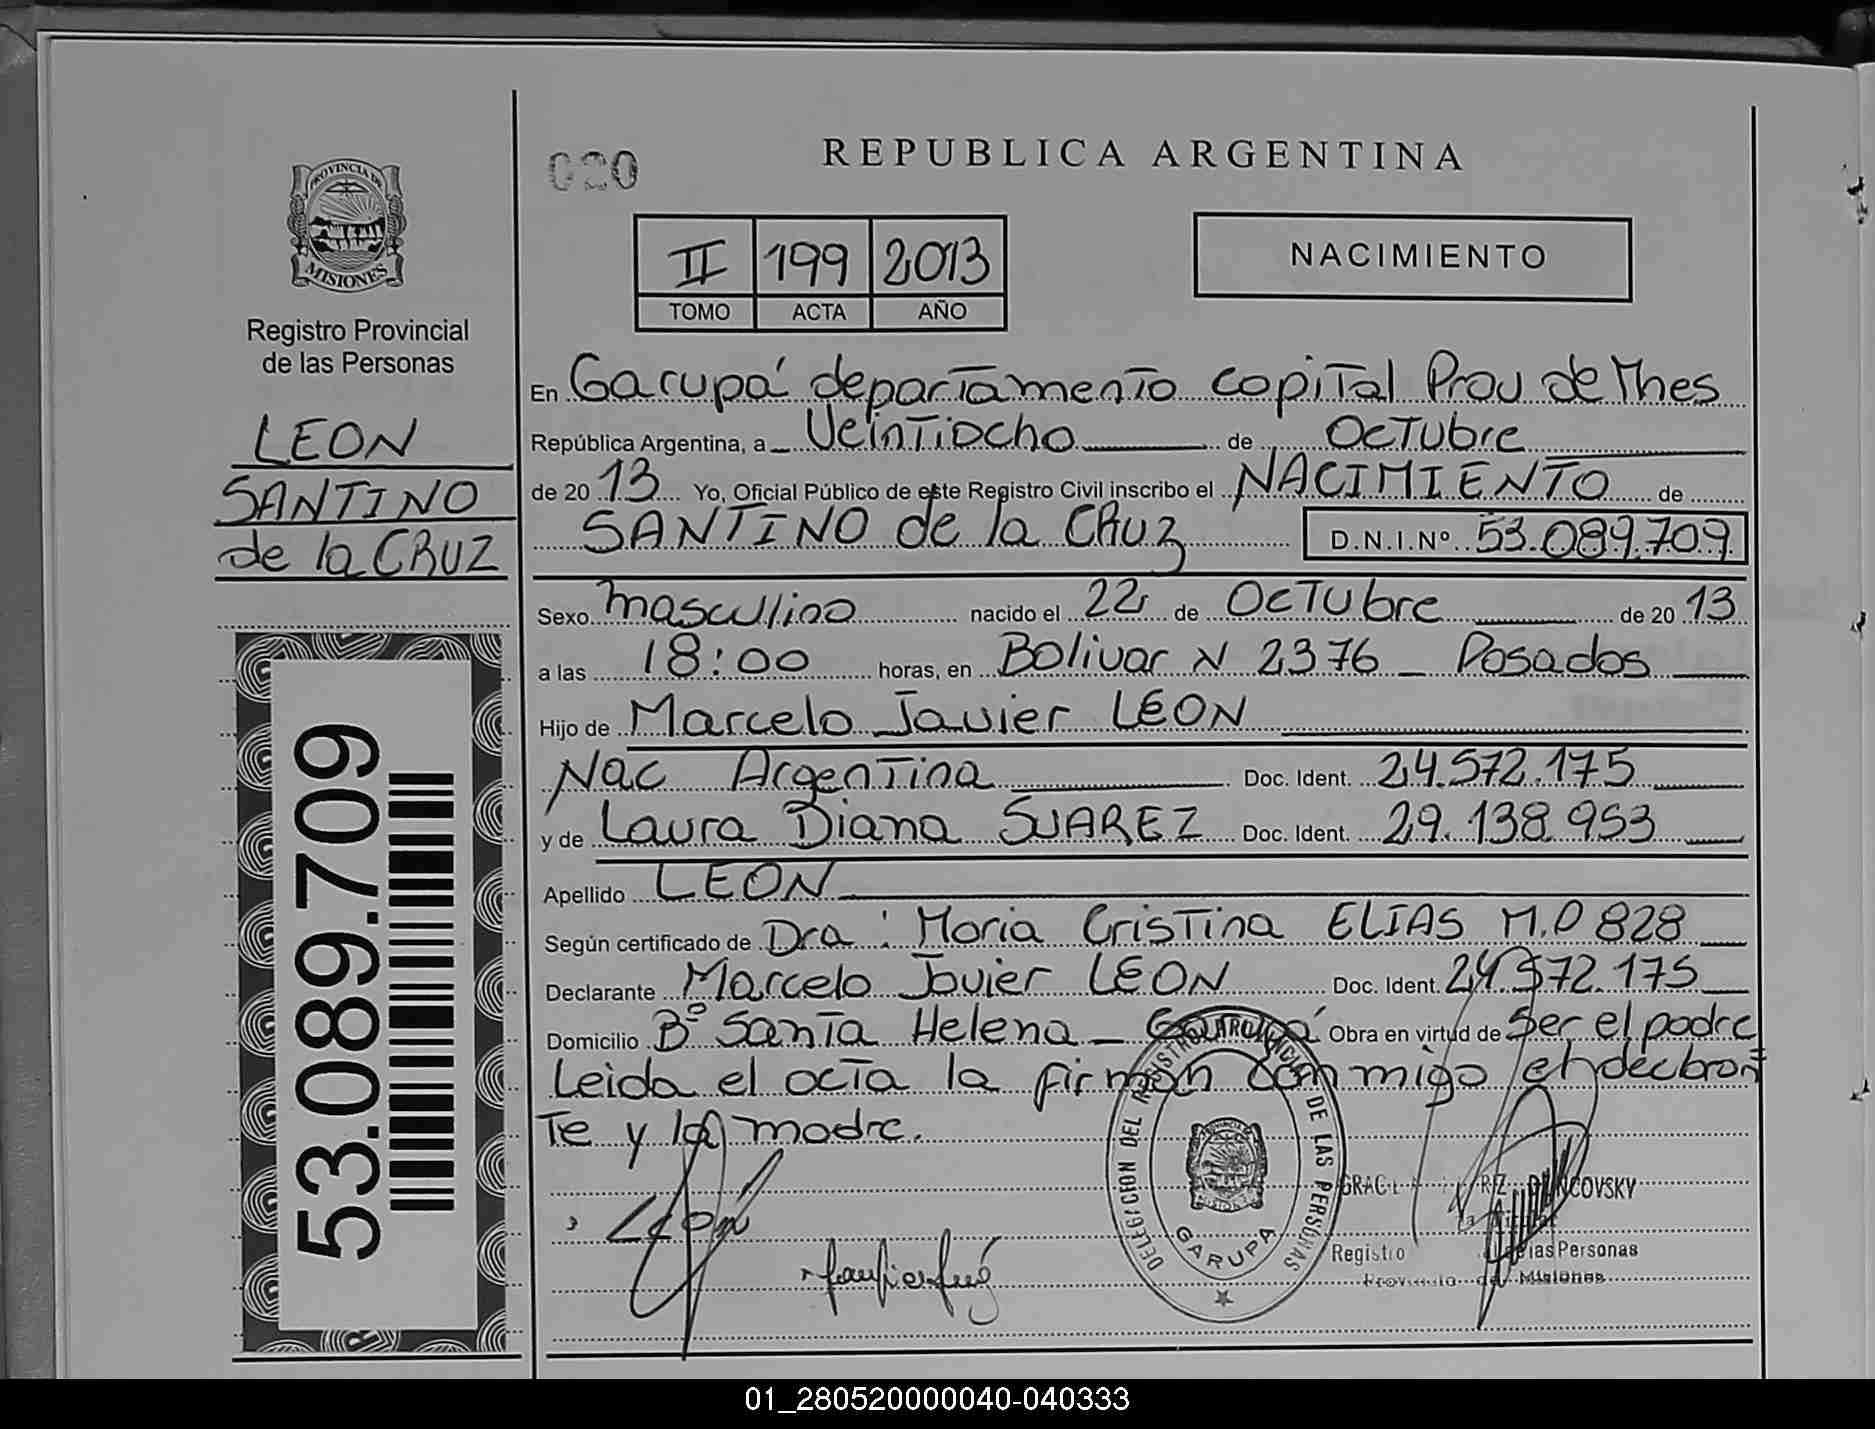 020
REPUBLICA ARGENTINA
PROVINCIA DE
MISIONES
II 199 2013
TOMO ACTA AÑO
NACIMIENTO
Registro Provincial
de las Personas
LEON
SANTINO
de la CRUZ
53.089.709
En Garupá departamento capital Prov de Mnes
República Argentina, a Veintiocho de Octubre
de 2013 Yo, Oficial Público de este Registro Civil inscribo el NACIMIENTO de
SANTINO de la CRUZ D.N.I.Nº 53.089.709
Sexo masculino nacido el 22 de Octubre de 2013
a las 18:00 horas, en Bolivar N 2376 _ Posadas
Hijo de Marcelo Javier LEON
Nac Argentina Doc. Ident. 24.572.175
y de Laura Diana SUAREZ Doc. Ident. 29.138.953
Apellido LEON
Según certificado de Dra: Maria Cristina ELIAS M.P 828
Declarante Marcelo Javier LEON Doc. Ident. 24.572.175
Domicilio Bº Santa Helena _ Garupá Obra en virtud de ser el padre
Leida el acta la firman conmigo el declaran
te y la madre.
DELEGACION DEL REGISTRO PROVINCIAL DE LAS PERSONAS
GARUPA
Leon
COVSKY
Registro las Personas
Provincia de Misiones
01_280520000040-040333